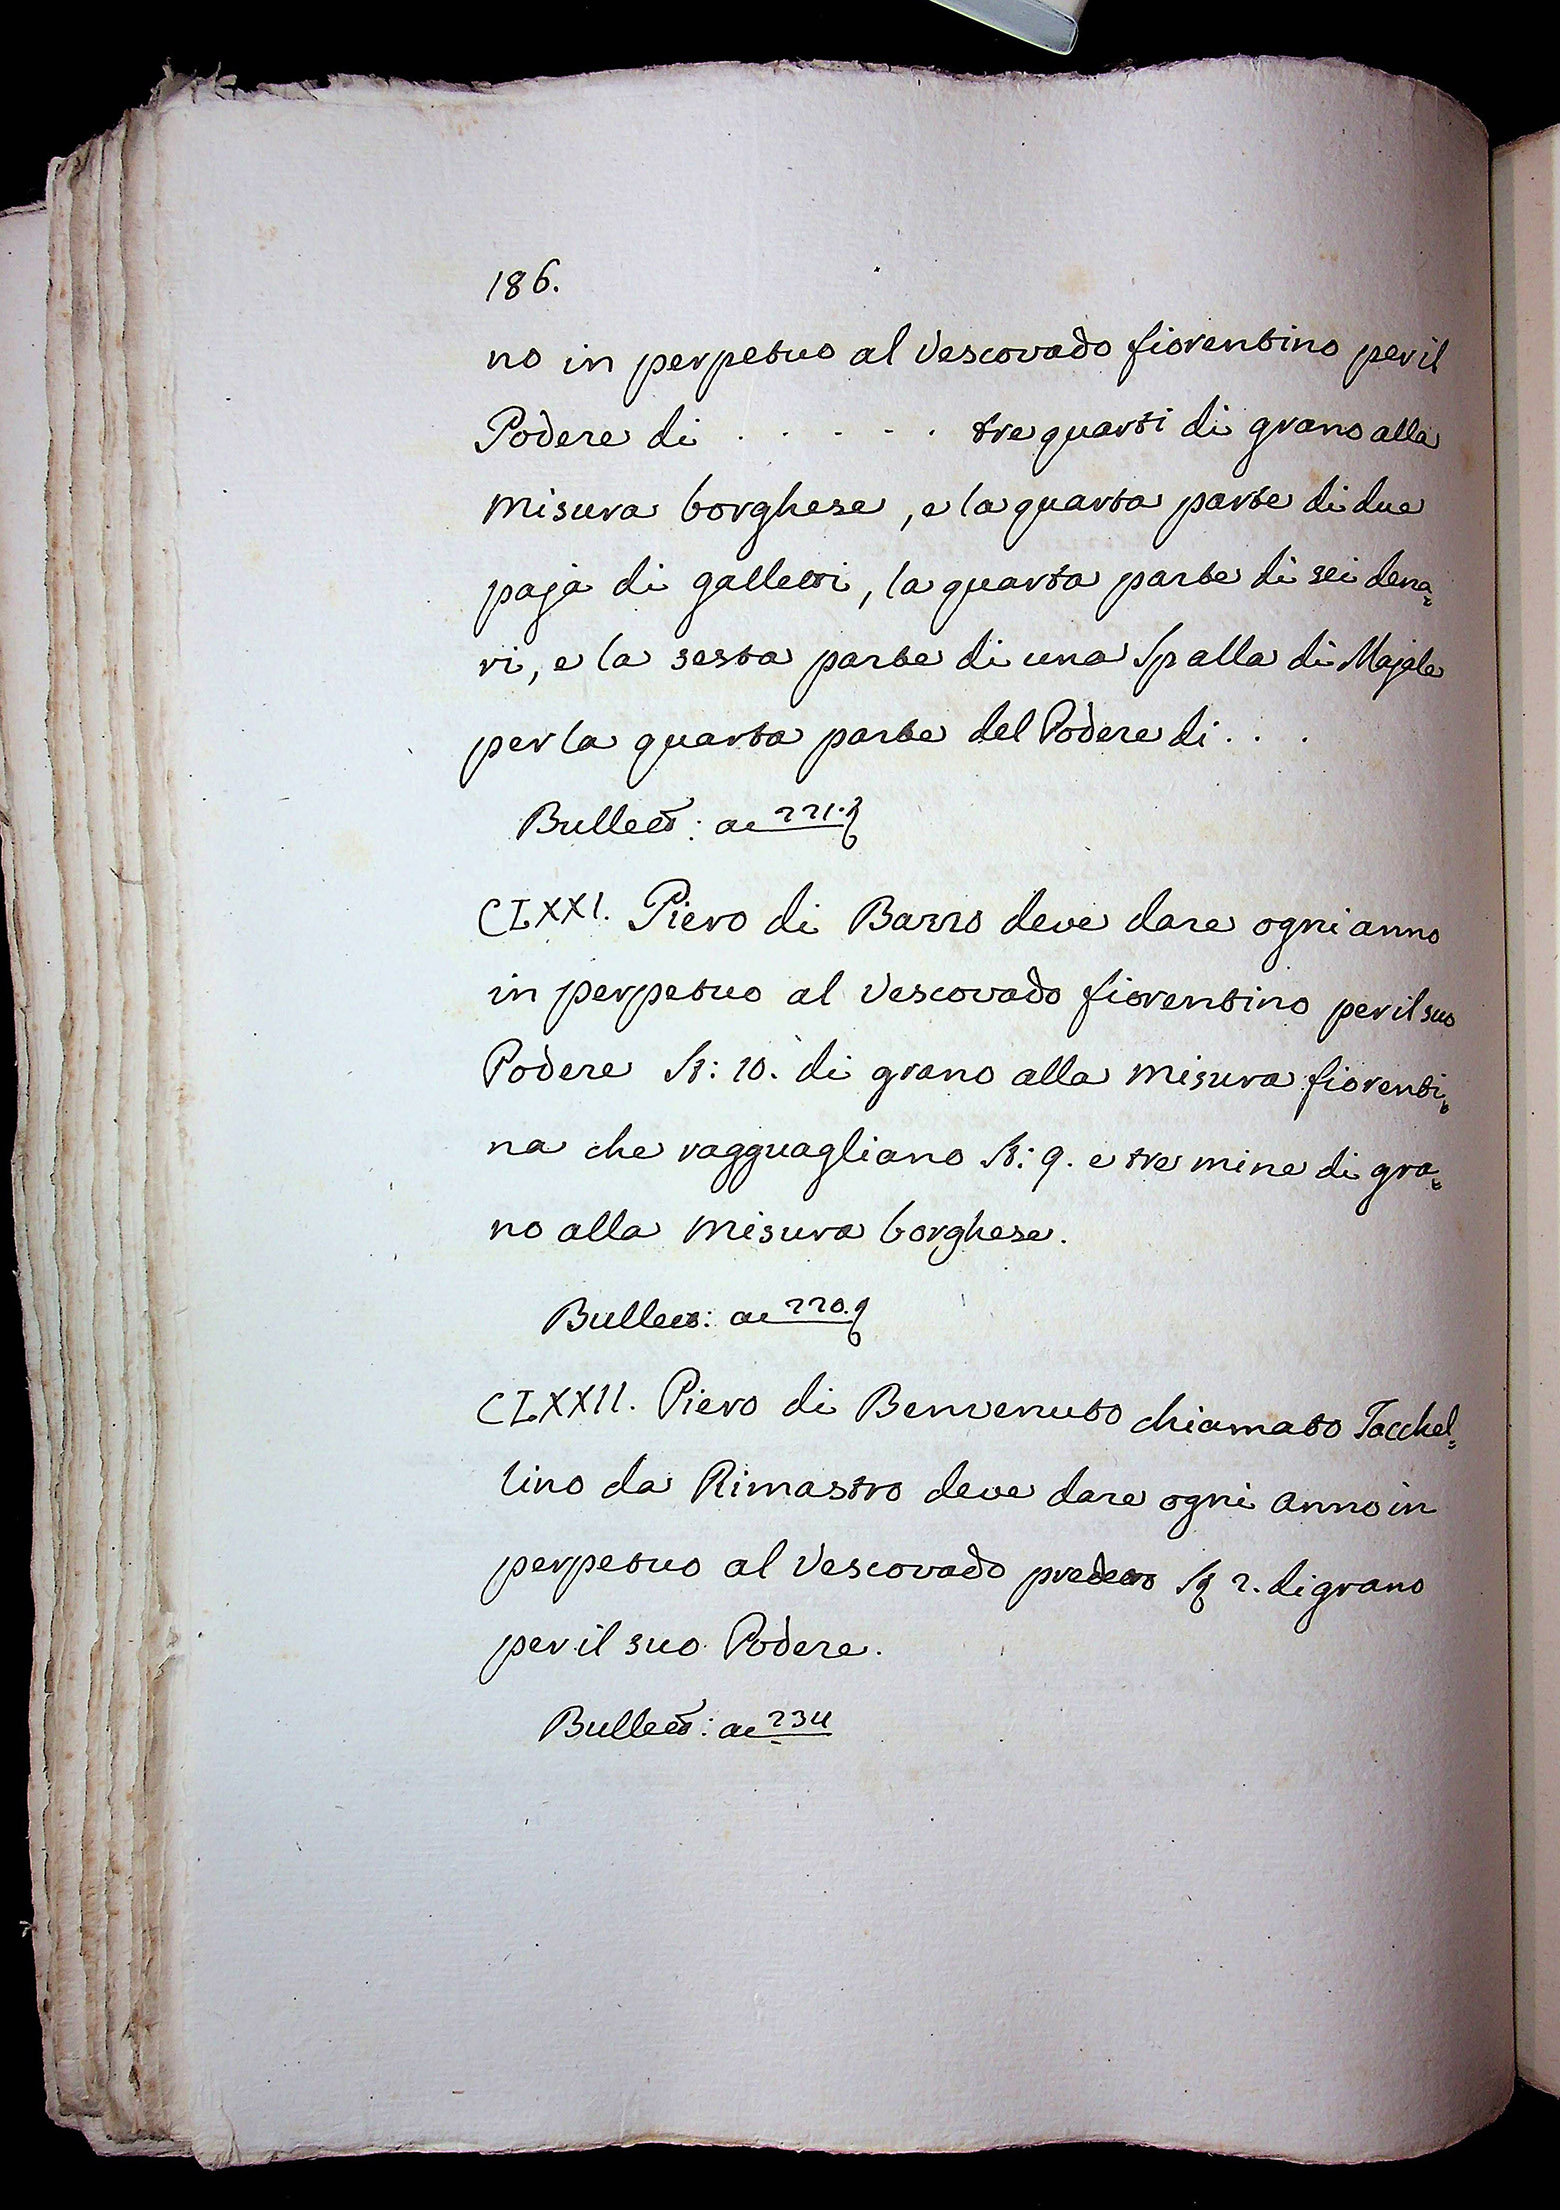 186.
no in perpetuo al Vescovado fiorentino per il
Podere di . . . . . . tre quarti di grano alla
misura borghese, e la quarta parte di due
paja di galletti, la quarta parte di sei dena=
ri, e la sesta parte di una Spalla di Majale
per la quarta parte del Podere di . . .
Bullett: ac 221.
CLXXI. Piero di Barro deve dare ogni anno
in perpetuo al Vescovado fiorentino per il suo
Podere St: 10. di grano alla misura fiorenti=
na che ragguagliano St: 9. e tre mine di gra=
no alla misura borghese.
Bullett: ac 220.
CLXXII. Piero di Benvenuto chiamato Tacchel=
lino da Rimastro deve dare ogni anno in
perpetuo al Vescovado predetto 2. di grano
per il suo Podere.
Bullett: ac 234